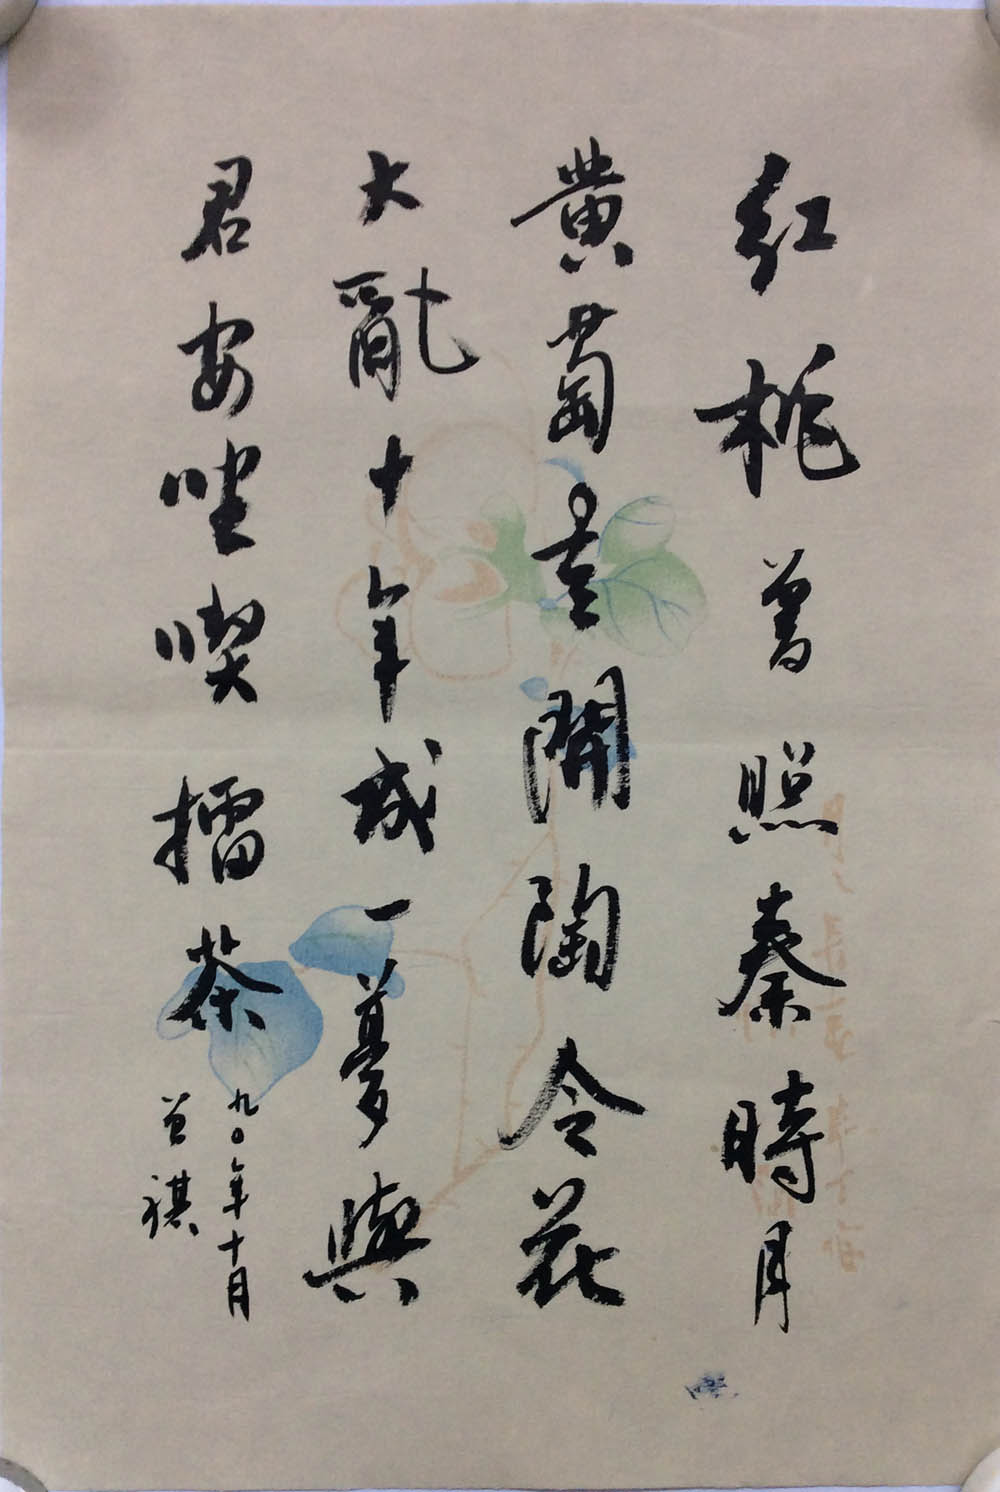 红桃曾照秦時月
黄菊重開陶令花
大亂十年成一夢與
君安坐喫擂茶
九〇年十月
曾祺